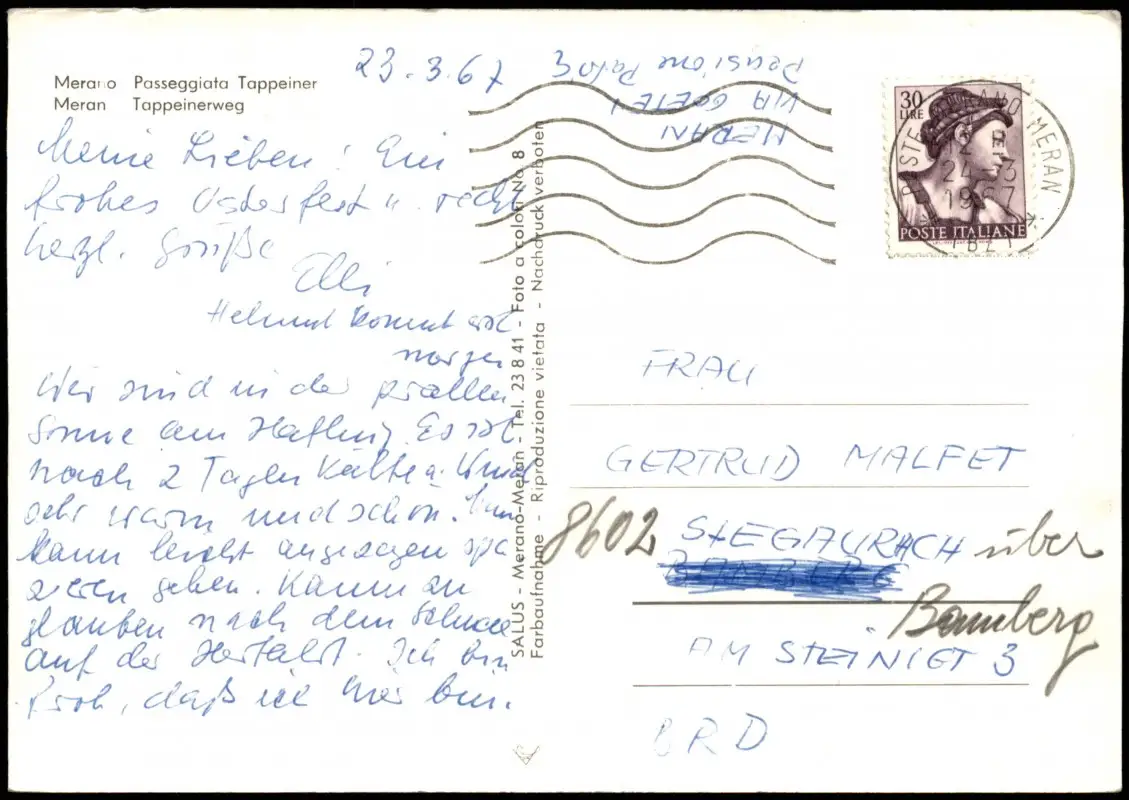 Merano Passeggiata Tappeiner
Meran Tappeinerweg
23.3.67
Pensione
VIA GOETE 1
MERAN
Meine Lieben! Ein
frohes Osterfest u. recht
herzl. Grüße
Elli
Helmut kommt erst
morgen
Wir sind in der prallen
Sonne am Hafling. Es ist
nach 2 Tagen Kälte u. Wind
sehr warm und schön. Man
kann leicht angezogen spa
zieren gehen. Kaum zu
glauben nach dem Schnee
auf der Herfahrt. Ich bin
froh, daß ich hier bin.
SALUS - Merano-Meran - Tel. 23 8 41 - Foto a colori No 8
Farbaufnahme - Riproduzione vietata - Nachdruck verboten
30
LIRE
POSTE ITALIANE
POSTE MERANO MERAN
24.3
1967
BZ
FRAU
GERTRUD MALFET
8602 STEGAURACH über
BAMBERG
Bamberg
AM STEINIGT 3
BRD